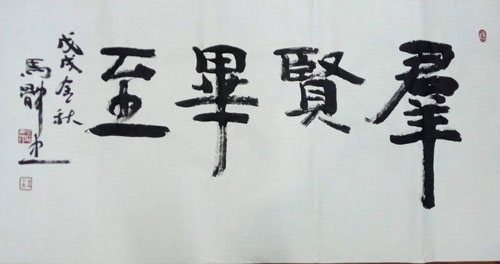 羣賢畢至
戊戌金秋
馬